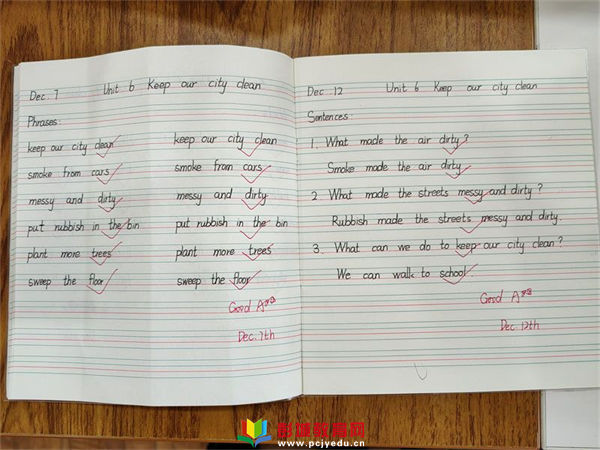 Dec. 7 Unit 6 Keep our city clean
Phrases:
keep our city clean keep our city clean
smoke from cars smoke from cars
messy and dirty messy and dirty
put rubbish in the bin put rubbish in the bin
plant more trees plant more trees
sweep the floor sweep the floor
Good A
Dec. 7th
Dec. 12 Unit 6 Keep our city clean
Sentences:
1. What made the air dirty?
Smoke made the air dirty.
2 What made the streets messy and dirty?
Rubbish made the streets messy and dirty.
3. What can we do to keep our city clean?
We can walk to school.
Good A
Dec 12th
www.pcjyedu.cn